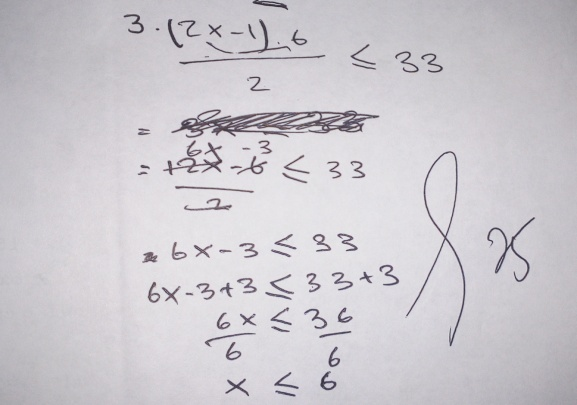 3. (2x-1).6
2
≤ 33
=
6x -3
= 12x -6 ≤ 33
2
6x-3 ≤ 33
6x-3+3 ≤ 33+3
6x ≤ 36
6 6
x ≤ 6
25